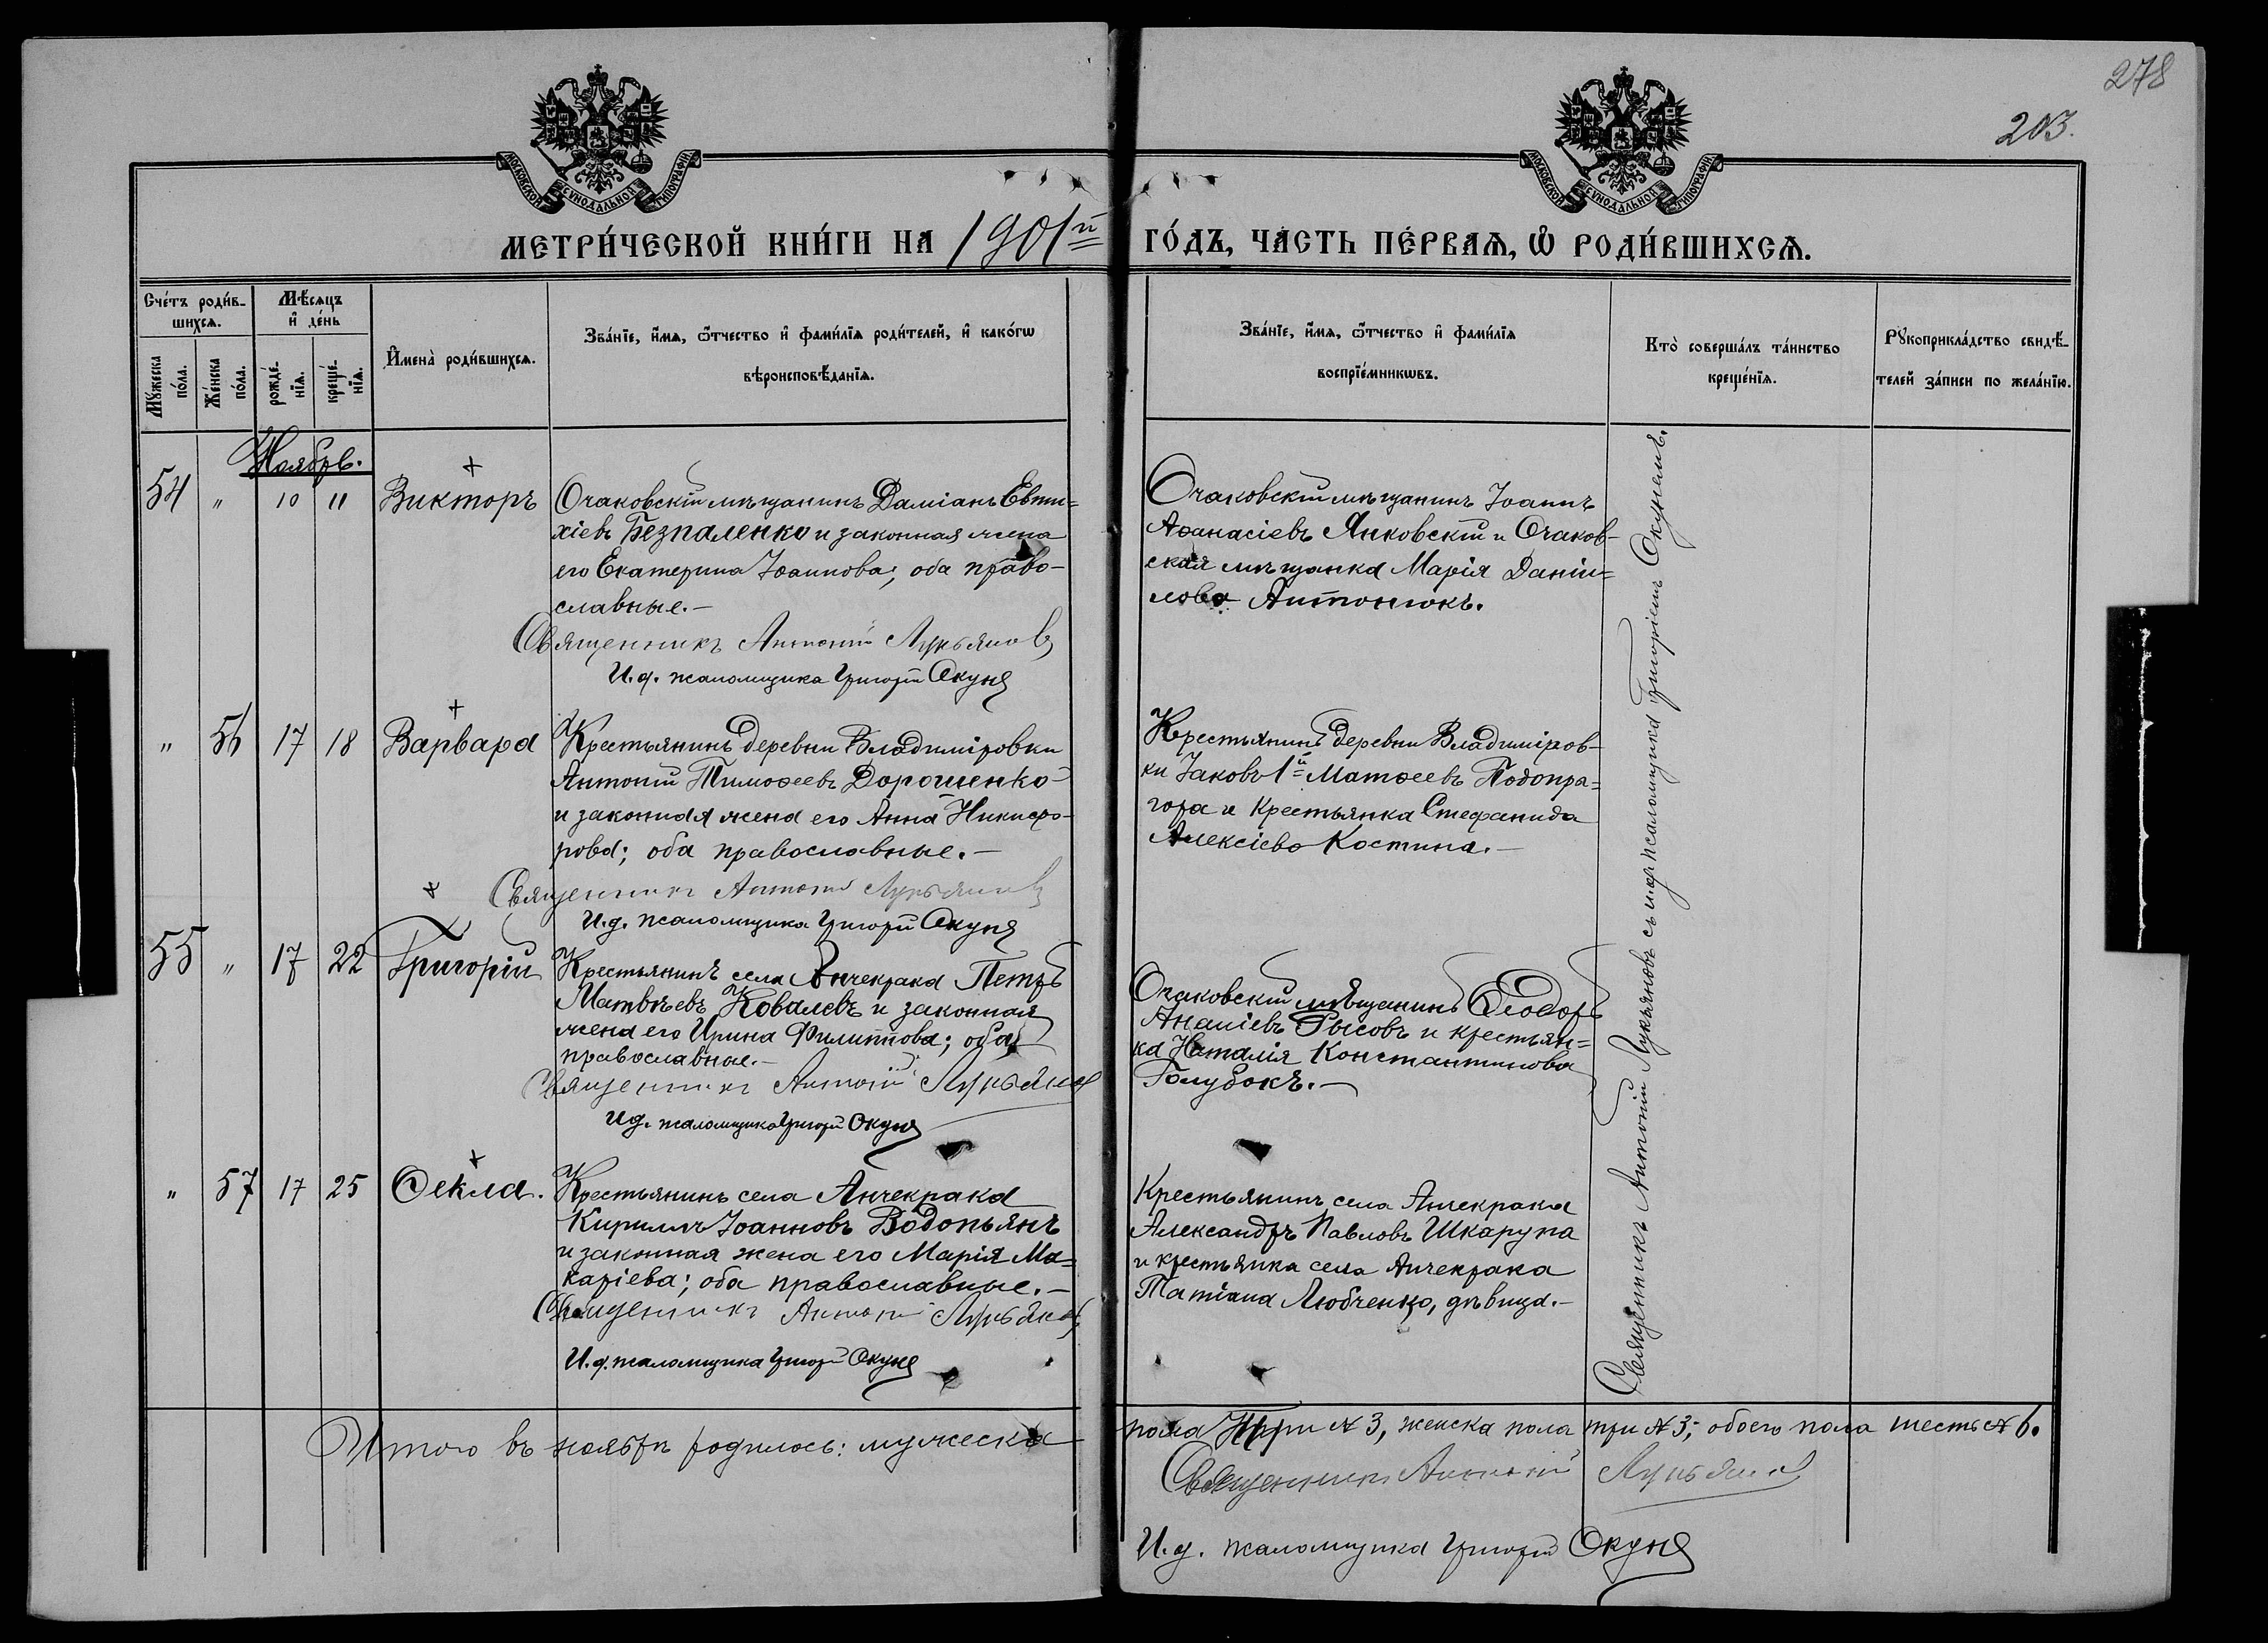 278
203.
МОСКОВСКОЙ СѴНОДАЛЬНОЙ ТИПОГРАФІИ
МОСКОВСКОЙ СѴНОДАЛЬНОЙ ТИПОГРАФІИ
МЕТРИ́ЧЕСКОЙ КНИ́ГИ НА 1901й ГО́ДЪ, ЧА́СТЬ ПЕ́РВАѦ, Ѽ РОДИ́ВШИХСѦ.
Сче́тъ роди́в-
шихсѧ.
Мѣ́сѧцъ
и҆ де́нь
Мꙋ́жеска
по́ла.
Же́нска
по́ла.
рожде́-
нїѧ.
креще́-
нїѧ.
И҆мена̀ роди́вшихсѧ.
Зва́нїе, и҆́мѧ, ѻ҆́тчество и҆ фами́лїѧ роди́телей, и҆ како́гѡ
вѣроисповѣ́данїѧ.
Зва́нїе, и҆́мѧ, ѻ҆́тчество и҆ фами́лїѧ
воспрїе́мникѡвъ.
Кто̀ соверша́лъ та́инство
креще́нїѧ.
Рꙋкоприкла́дство свидѣ́-
телей за́писи по жела́нїю.
Ноябрь.
54 " 10 11 Викторъ
Очаковскій мѣщанинъ Даміанъ Евти=
хіевъ Безпаленко и законная жена
его Екатерина Іоаннова; оба право-
славные.-
Священникъ Антоній Лукьянов
И.д. псаломщика Григорій Окунь
Очаковскій мѣщанинъ Іоаннъ
Аѳанасіевъ Янковскій и Очаков-
ская мѣщанка Марія Даніи=
лова Антонюкъ.
" 56 17 18 Варвара
Крестьянинъ деревни Владиміровки
Антоній Тимоѳеевъ Дорошенко
и законная жена его Анна Никифо-
рова; оба православные.-
Священникъ Антоній Лукьянов
И.д. псаломщика Григорій Окунь
Крестьянинъ деревни Владиміров-
ки Іаковъ 1й Матѳеевъ Подопри=
гора и крестьянка Стефанида
Алексіева Костина.-
55 " 17 22 Григорій
Крестьянинъ села Анчекрака Петръ
Матвѣевъ Ковалевъ и законная
жена его Ирина Филиппова; оба
православные.-
Священникъ Антоній Лукьянов
И.д. псаломщика Григорій Окунь
Очаковскій мѣщанинъ Ѳеодоръ
Ананіевъ Рысовъ и крестьян=
ка Наталія Константинова
Голубокъ.-
" 57 17 25 Ѳекла.
Крестьянинъ села Анчекрака
Кириллъ Іоанновъ Водопьянъ
и законная жена его Марія Ма=
каріева; оба православные.-
Священникъ Антоній Лукьянов
И.д. псаломщика Григорій Окунь
Крестьянинъ села Анчекрака
Александръ Павловъ Шкарупа
и крестьянка села Анчекрака
Татіана Любченко, дѣвица.-
Священникъ Антоній Лукьяновъ съ и.д. псаломщика Григоріемъ Окунемъ.
Итого въ ноябрѣ родилось: мужеска пола три № 3, женска пола три № 3; обоего пола шесть № 6.
Священникъ Антоній Лукьянов
И.д. псаломщика Григорій Окунь